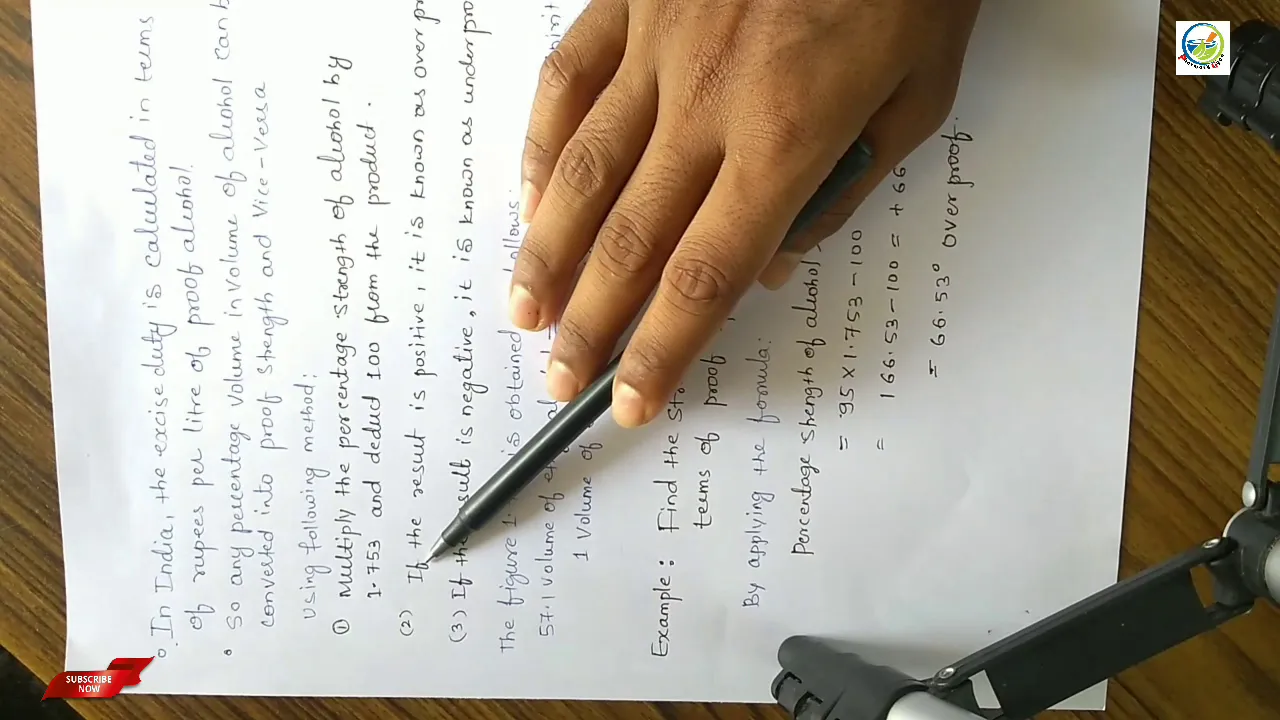 In India, the excise duty is calculated in terms
of rupees per litre of proof alcohol.
So any percentage volume in volume of alcohol can
converted into proof strength and Vice-Versa
Using following method:
① Multiply the percentage strength of alcohol by
1.753 and deduct 100 from the product.
(2) If the result is positive, it is known as over
(3) If the result is negative, it is known as
The figure 1. is obtained follows:
57.1 Volume of
1 Volume of
Example: Find the
terms of proof
By applying the formula:
Percentage strength of alcohol
= 95 × 1.753 - 100
= 166.53 - 100 = + 66
= 66.53° over proof.
SUBSCRIBE
NOW